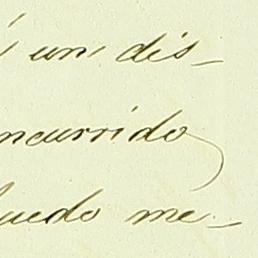 un dis-
ncurrido
uedo me-